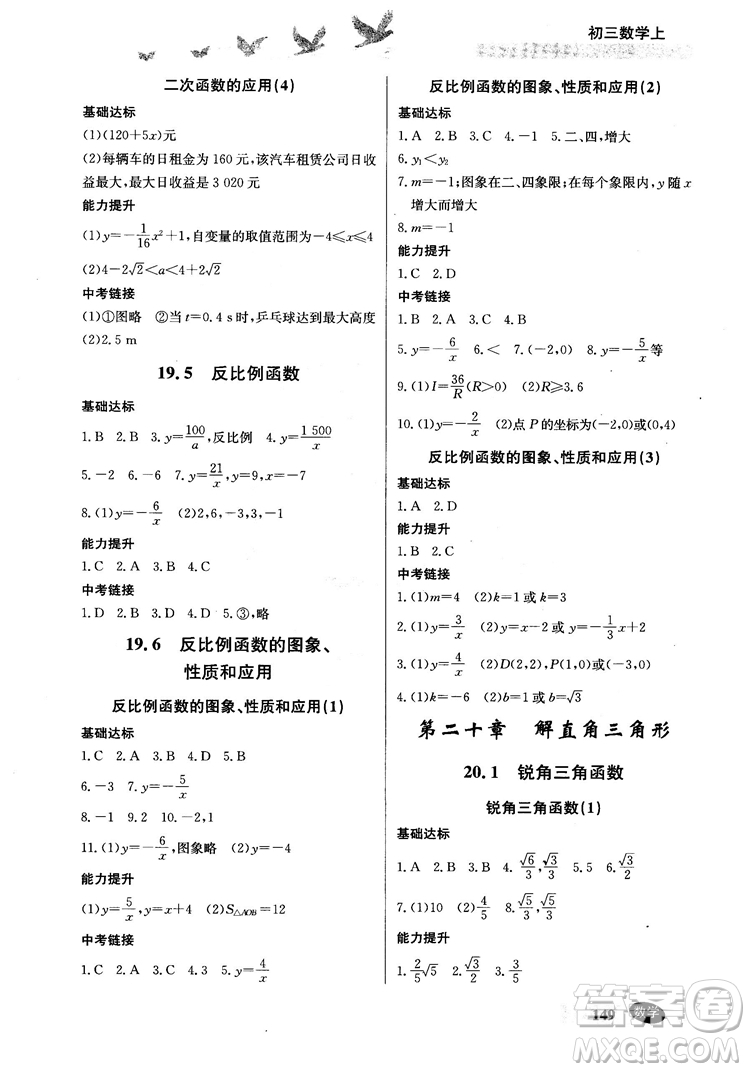 初三数学上
二次函数的应用(4)
基础达标
(1)(120+5x)元
(2)每辆车的日租金为 160 元,该汽车租赁公司日收
益最大,最大日收益是 3 020 元
能力提升
(1)y=-1/16x²+1,自变量的取值范围为-4≤x≤4
(2)4-2√2<a<4+2√2
中考链接
(1)①图略 ②当 t=0.4 s时,乒乓球达到最大高度
(2)2.5 m
19.5 反比例函数
基础达标
1.B 2.B 3.y=100/a,反比例 4.y=1 500/x
5.-2 6.-6 7.y=21/x,y=9,x=-7
8.(1)y=-6/x (2)2,6,-3,3,-1
能力提升
1.C 2.A 3.B 4.C
中考链接
1.D 2.D 3.A 4.B 5.③,略
19.6 反比例函数的图象、
性质和应用
反比例函数的图象、性质和应用(1)
基础达标
1.C 2.C 3.D 4.A 5.B
6.-3 7.y=-5/x
8.-1 9.2 10.-2,1
11.(1)y=-6/x,图象略 (2)y=-4
能力提升
(1)y=5/x,y=x+4 (2)S△AOB=12
中考链接
1.C 2.C 3.C 4.3 5.y=4/x
反比例函数的图象、性质和应用(2)
基础达标
1.A 2.B 3.C 4.-1 5.二、四,增大
6.y₁<y₂
7.m=-1;图象在二、四象限;在每个象限内,y 随 x
增大而增大
8.m=-1
能力提升
1.C 2.D
中考链接
1.C 2.C 3.C 4.B
5.y=-6/x 6.< 7.y=-2/x 8.y=-5/x等
9.(1)I=36/R(R>0) (2)R≥3.6
10.(1)y=-2/x (2)点 P 的坐标为(-2,0)或(0,4)
反比例函数的图象、性质和应用(3)
基础达标
1.A 2.D
能力提升
1.B 2.C
中考链接
1.(1)m=4 (2)k=1 或 k=3
2.(1)y=3/x (2)y=x-2 或 y=-1/3x
3.(1)y=4/x (2)D(2,2),P(1,0)或(3,0)
4.(1)k=-6 (2)b=1 或 b=√3
第二十章 解直角三角形
20.1 锐角三角函数
锐角三角函数(1)
基础达标
1.A 2.B 3.B 4.√6/3,√3/3 5.5 6.√3/2
7.(1)10 (2)4/5 8.√5/3,√5/3
能力提升
1.2/5√5 2.√3/2
149 数学
答案卷